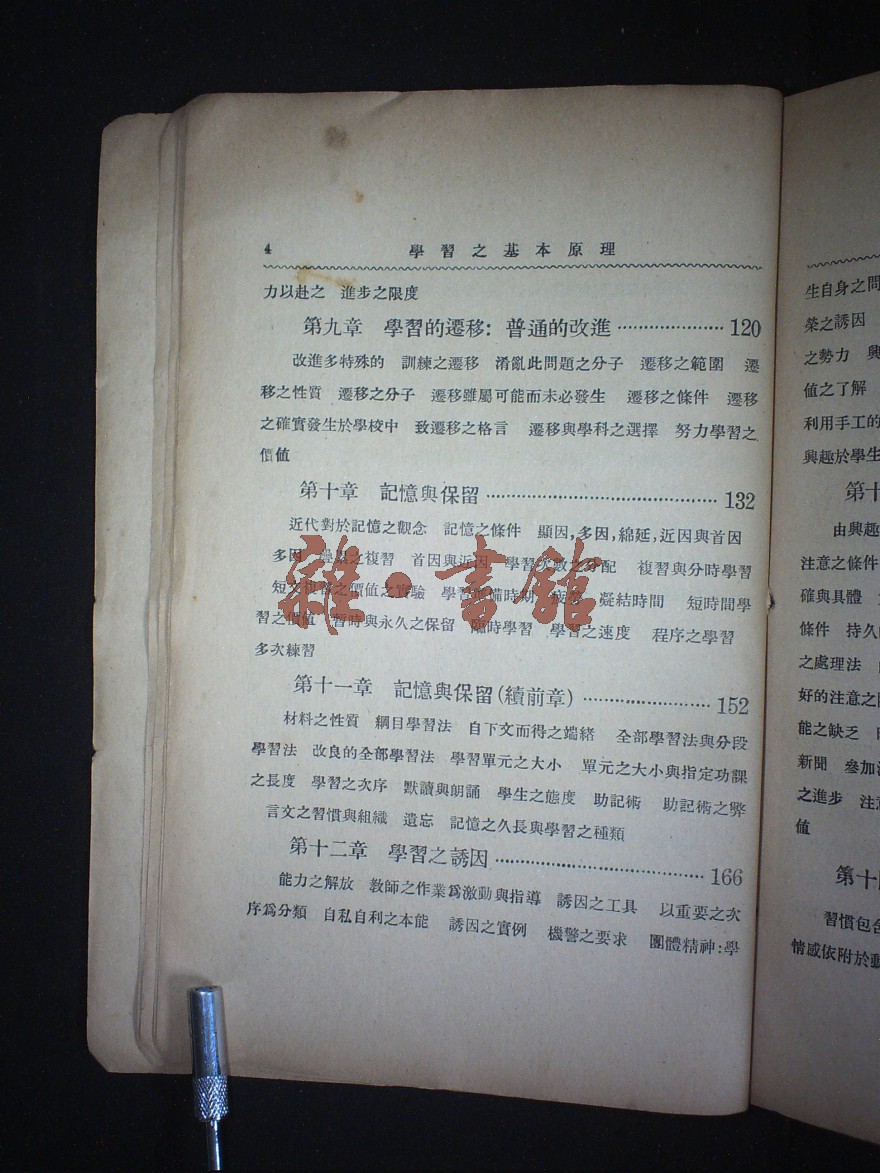 4 學習之基本原理
力以赴之 進步之限度
第九章 學習的遷移：普通的改進 ………………… 120
改進多特殊的 訓練之遷移 淆亂此問題之分子 遷移之範圍 遷
移之性質 遷移之分子 遷移雖屬可能而未必發生 遷移之條件 遷移
之確實發生於學校中 致遷移之格言 遷移與學科之選擇 努力學習之
價值
第十章 記憶與保留 ………………… 132
近代對於記憶之觀念 記憶之條件 顯因，多因，綿延，近因與首因
多因 之複習 首因與近因 學習次數之分配 複習與分時學習
短文複習之價值之實驗 學習 備時期 疲勞 凝結時間 短時間學
習之價值 暫時與永久之保留 臨時學習 學習之速度 程序之學習
多次練習
第十一章 記憶與保留（續前章） ………………… 152
材料之性質 綱目學習法 自下文而得之端緒 全部學習法與分段
學習法 改良的全部學習法 學習單元之大小 單元之大小與指定功課
之長度 學習之次序 默讀與朗誦 學生之態度 助記術 助記術之弊
言文之習慣與組織 遺忘 記憶之久長與學習之種類
第十二章 學習之誘因 ………………… 166
能力之解放 教師之作業爲激動與指導 誘因之工具 以重要之次
序爲分類 自私自利之本能 誘因之實例 機警之要求 團體精神：學
雜·書館
生自身之問
榮之誘因
之勢力 興
值之了解
利用手工的
興趣於學生
第十
由興趣
注意之條件
確與具體
條件 持久
之處理法
好的注意之
能之缺乏
新聞 參加
之進步 注意
值
第十四
習慣包含
情感依附於動